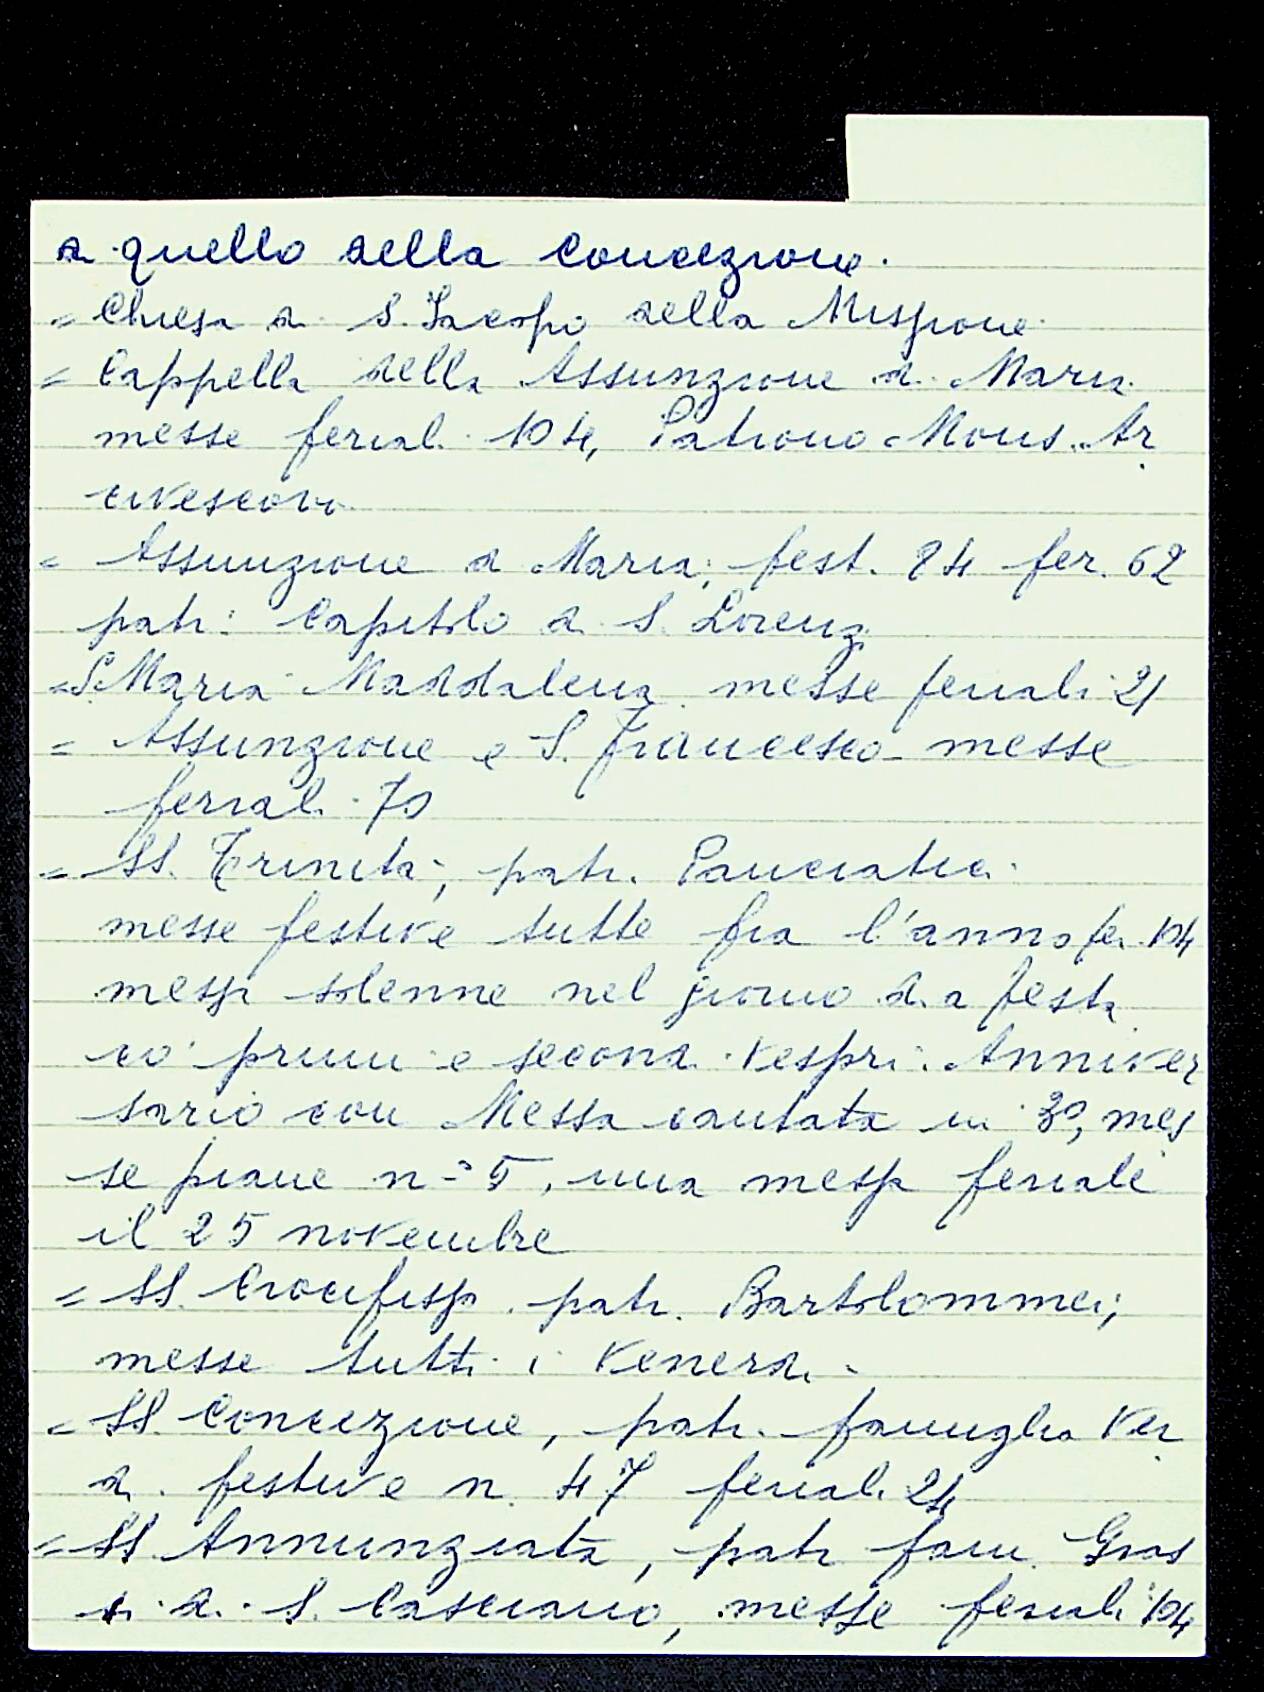 di quello della Concezione.
= Chiesa di S. Jacopo della Missione
= Cappella della Assunzione di Maria
messe feriali 104, Patrono Mons. Ar
civescovo
= Assunzione di Maria; fest. 24 fer. 62
patr: Capitolo di S. Lorenzo
= S. Maria Maddalena messe feriali 21
= Assunzione e S. Francesco messe
feriali 70
= SS. Trinità, patr. Panciatici
messe festive tutte fra l'anno fer. 104
messa solenne nel giorno di festa
co' primi e secondi Vespri. Anniver
sario con Messa cantata in 3º, mes
se piane n= 5, una messa feriale
il 25 novembre
= SS. Crocifisso patr. Bartolommei;
messe tutti i Venerdi -
= SS. Concezione, patr. famiglia Ver
di festive n. 47 feriali 24
= SS. Annunziata, patr fam. Gras
si di S. Casciano, messe feriali 104